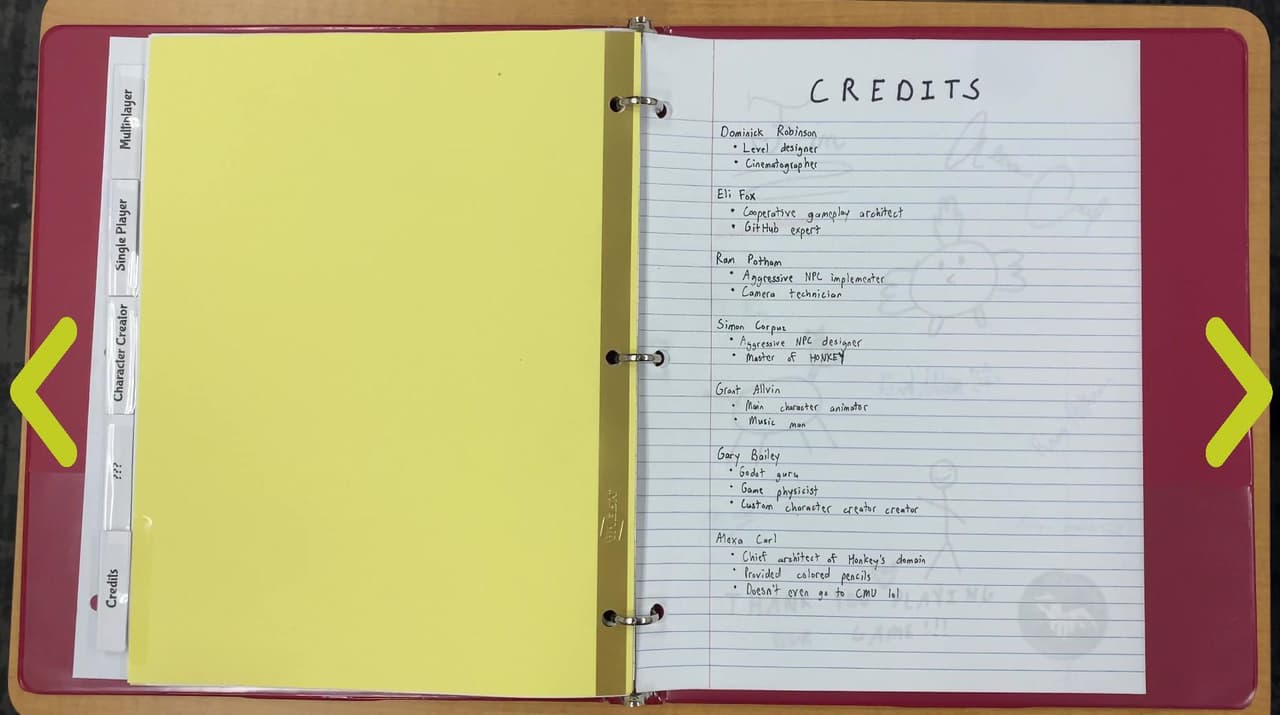 Multiplayer
Single Player
Character Creator
???
Credits
CREDITS
Dominick Robinson
• Level designer
• Cinematographer
Eli Fox
• Cooperative gameplay architect
• GitHub expert
Ram Potham
• Aggressive NPC implementer
• Camera technician
Simon Corpuz
• Aggressive NPC designer
• Master of HONKEY
Grant Allvin
• Main character animator
• Music man
Gary Bailey
• Godot guru
• Game physicist
• Custom character creator creator
Alexa Carl
• Chief architect of Honkey's domain
• Provided colored pencils
• Doesn't even go to CMU lol
THANK YOU PLAYING
OUR GAME!!!